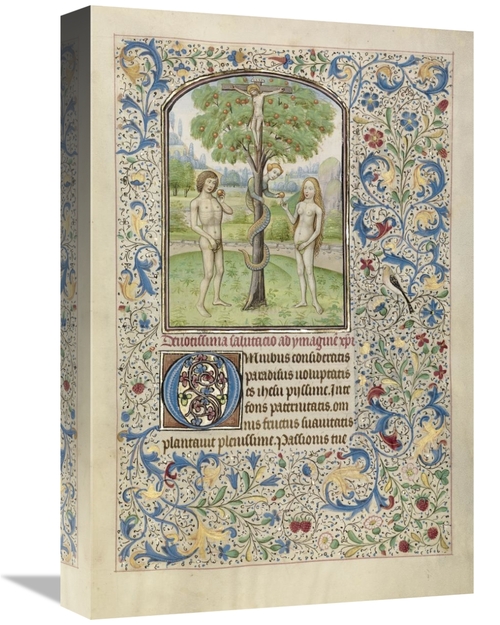 Deuotissima salutacio ad ymaginē xpi
Omnibus consideratis
paradisus voluptatis
es ihesu pyssime. Inte
tons paternitatis, om
nis fructus suauitatis
plantauit plenissime. Passionis tue